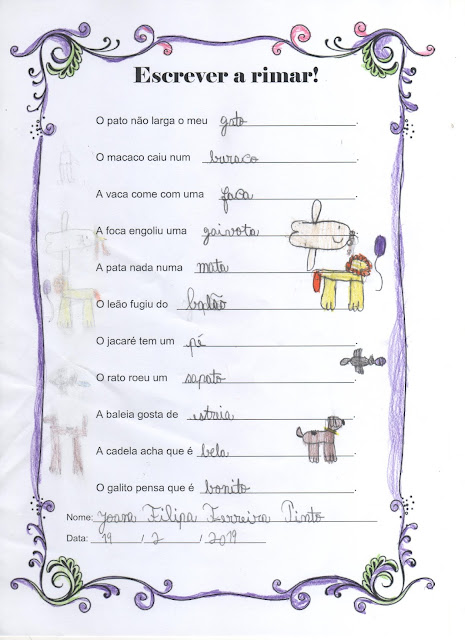 Escrever a rimar!
O pato não larga o meu gato.
O macaco caiu num buraco.
A vaca come com uma faca.
A foca engoliu uma gaivota.
A pata nada numa mata.
O leão fugiu do balão.
O jacaré tem um pé.
O rato roeu um sapato.
A baleia gosta de istria.
A cadela acha que é bela.
O galito pensa que é bonito.
Nome: Joana Filipa Ferreira Pinto
Data: 19 / 2 / 2019